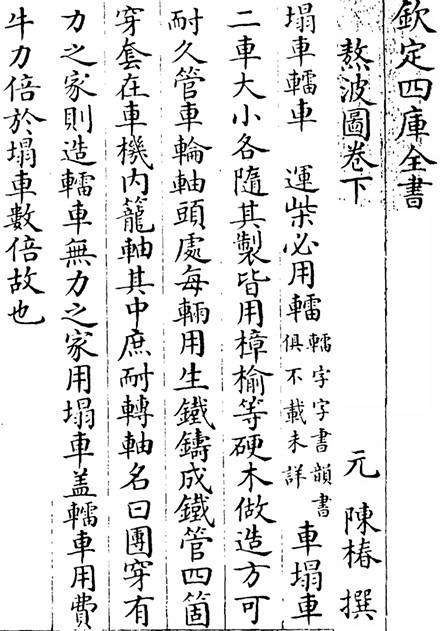 欽定四庫全書
熬波圖卷下
元 陳椿 撰
塌車轜車 運柴必用轜轜字字書韻書俱不載未詳車塌車
二車大小各隨其製皆用樟榆等硬木做造方可
耐久管車輪軸頭處每輛用生鐵鑄成鐵管四箇
穿套在車機內籠軸其中庶耐轉軸名曰團穿有
力之家則造轜車無力之家用塌車盖轜車用費
牛力倍於塌車數倍故也